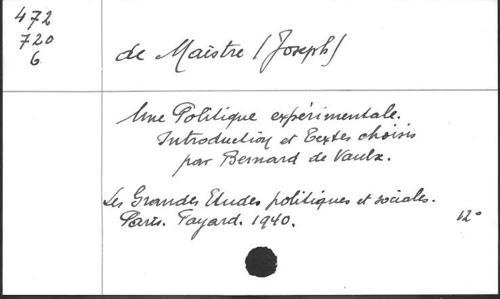 472
720
6
de Maistre (Joseph)
Une Politique expérimentale.
Introduction et Textes choisis
par Bernard de Vaulx.
Les Grandes Etudes politiques et sociales.
Paris. Fayard. 1940.
12°